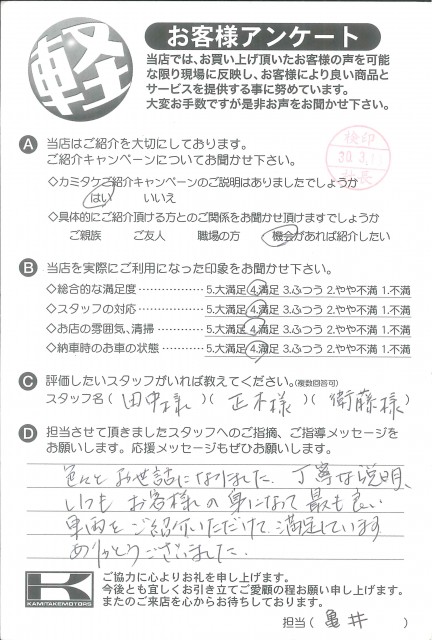 軽
お客様アンケート
当店では、お買い上げ頂いたお客様の声を可能
な限り現場に反映し、お客様により良い商品と
サービスを提供する事に努めています。
大変お手数ですが是非お声をお聞かせ下さい。
検印
30.3.
社長
A 当店はご紹介を大切にしております。
ご紹介キャンペーンについてお聞かせ下さい。
◇カミタケご紹介キャンペーンのご説明はありましたでしょうか
はい いいえ
◇具体的にご紹介頂ける方とのご関係をお聞かせ頂けますでしょうか
ご親族 ご友人 職場の方 機会があれば紹介したい
B 当店を実際にご利用になった印象をお聞かせ下さい。
◇総合的な満足度 5.大満足 4.満足 3.ふつう 2.やや不満 1.不満
◇スタッフの対応 5.大満足 4.満足 3.ふつう 2.やや不満 1.不満
◇お店の雰囲気、清掃 5.大満足 4.満足 3.ふつう 2.やや不満 1.不満
◇納車時のお車の状態 5.大満足 4.満足 3.ふつう 2.やや不満 1.不満
C 評価したいスタッフがいれば教えてください。(複数回答可)
スタッフ名(田中様)(正木様)(衛藤様)
D 担当させて頂きましたスタッフへのご指摘、ご指導メッセージを
お願いします。応援メッセージもぜひお願いします。
色々とお世話になりました。丁寧な説明、
いつもお客様の身になって最も良い
車両をご紹介いただけて満足しています
ありがとうございました。
K
KAMITAKEMOTORS
ご協力に心よりお礼を申し上げます。
今後とも宜しくお引き立てご愛顧の程お願い申し上げます。
またのご来店を心からお待ちしております。
担当(亀井)